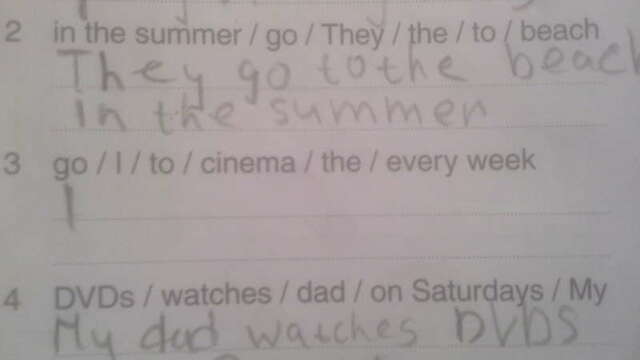 2 in the summer / go / They / the / to / beach
They go to the beach
in the summer
3 go / I / to / cinema / the / every week
I
4 DVDs / watches / dad / on Saturdays / My
My dad watches DVDS